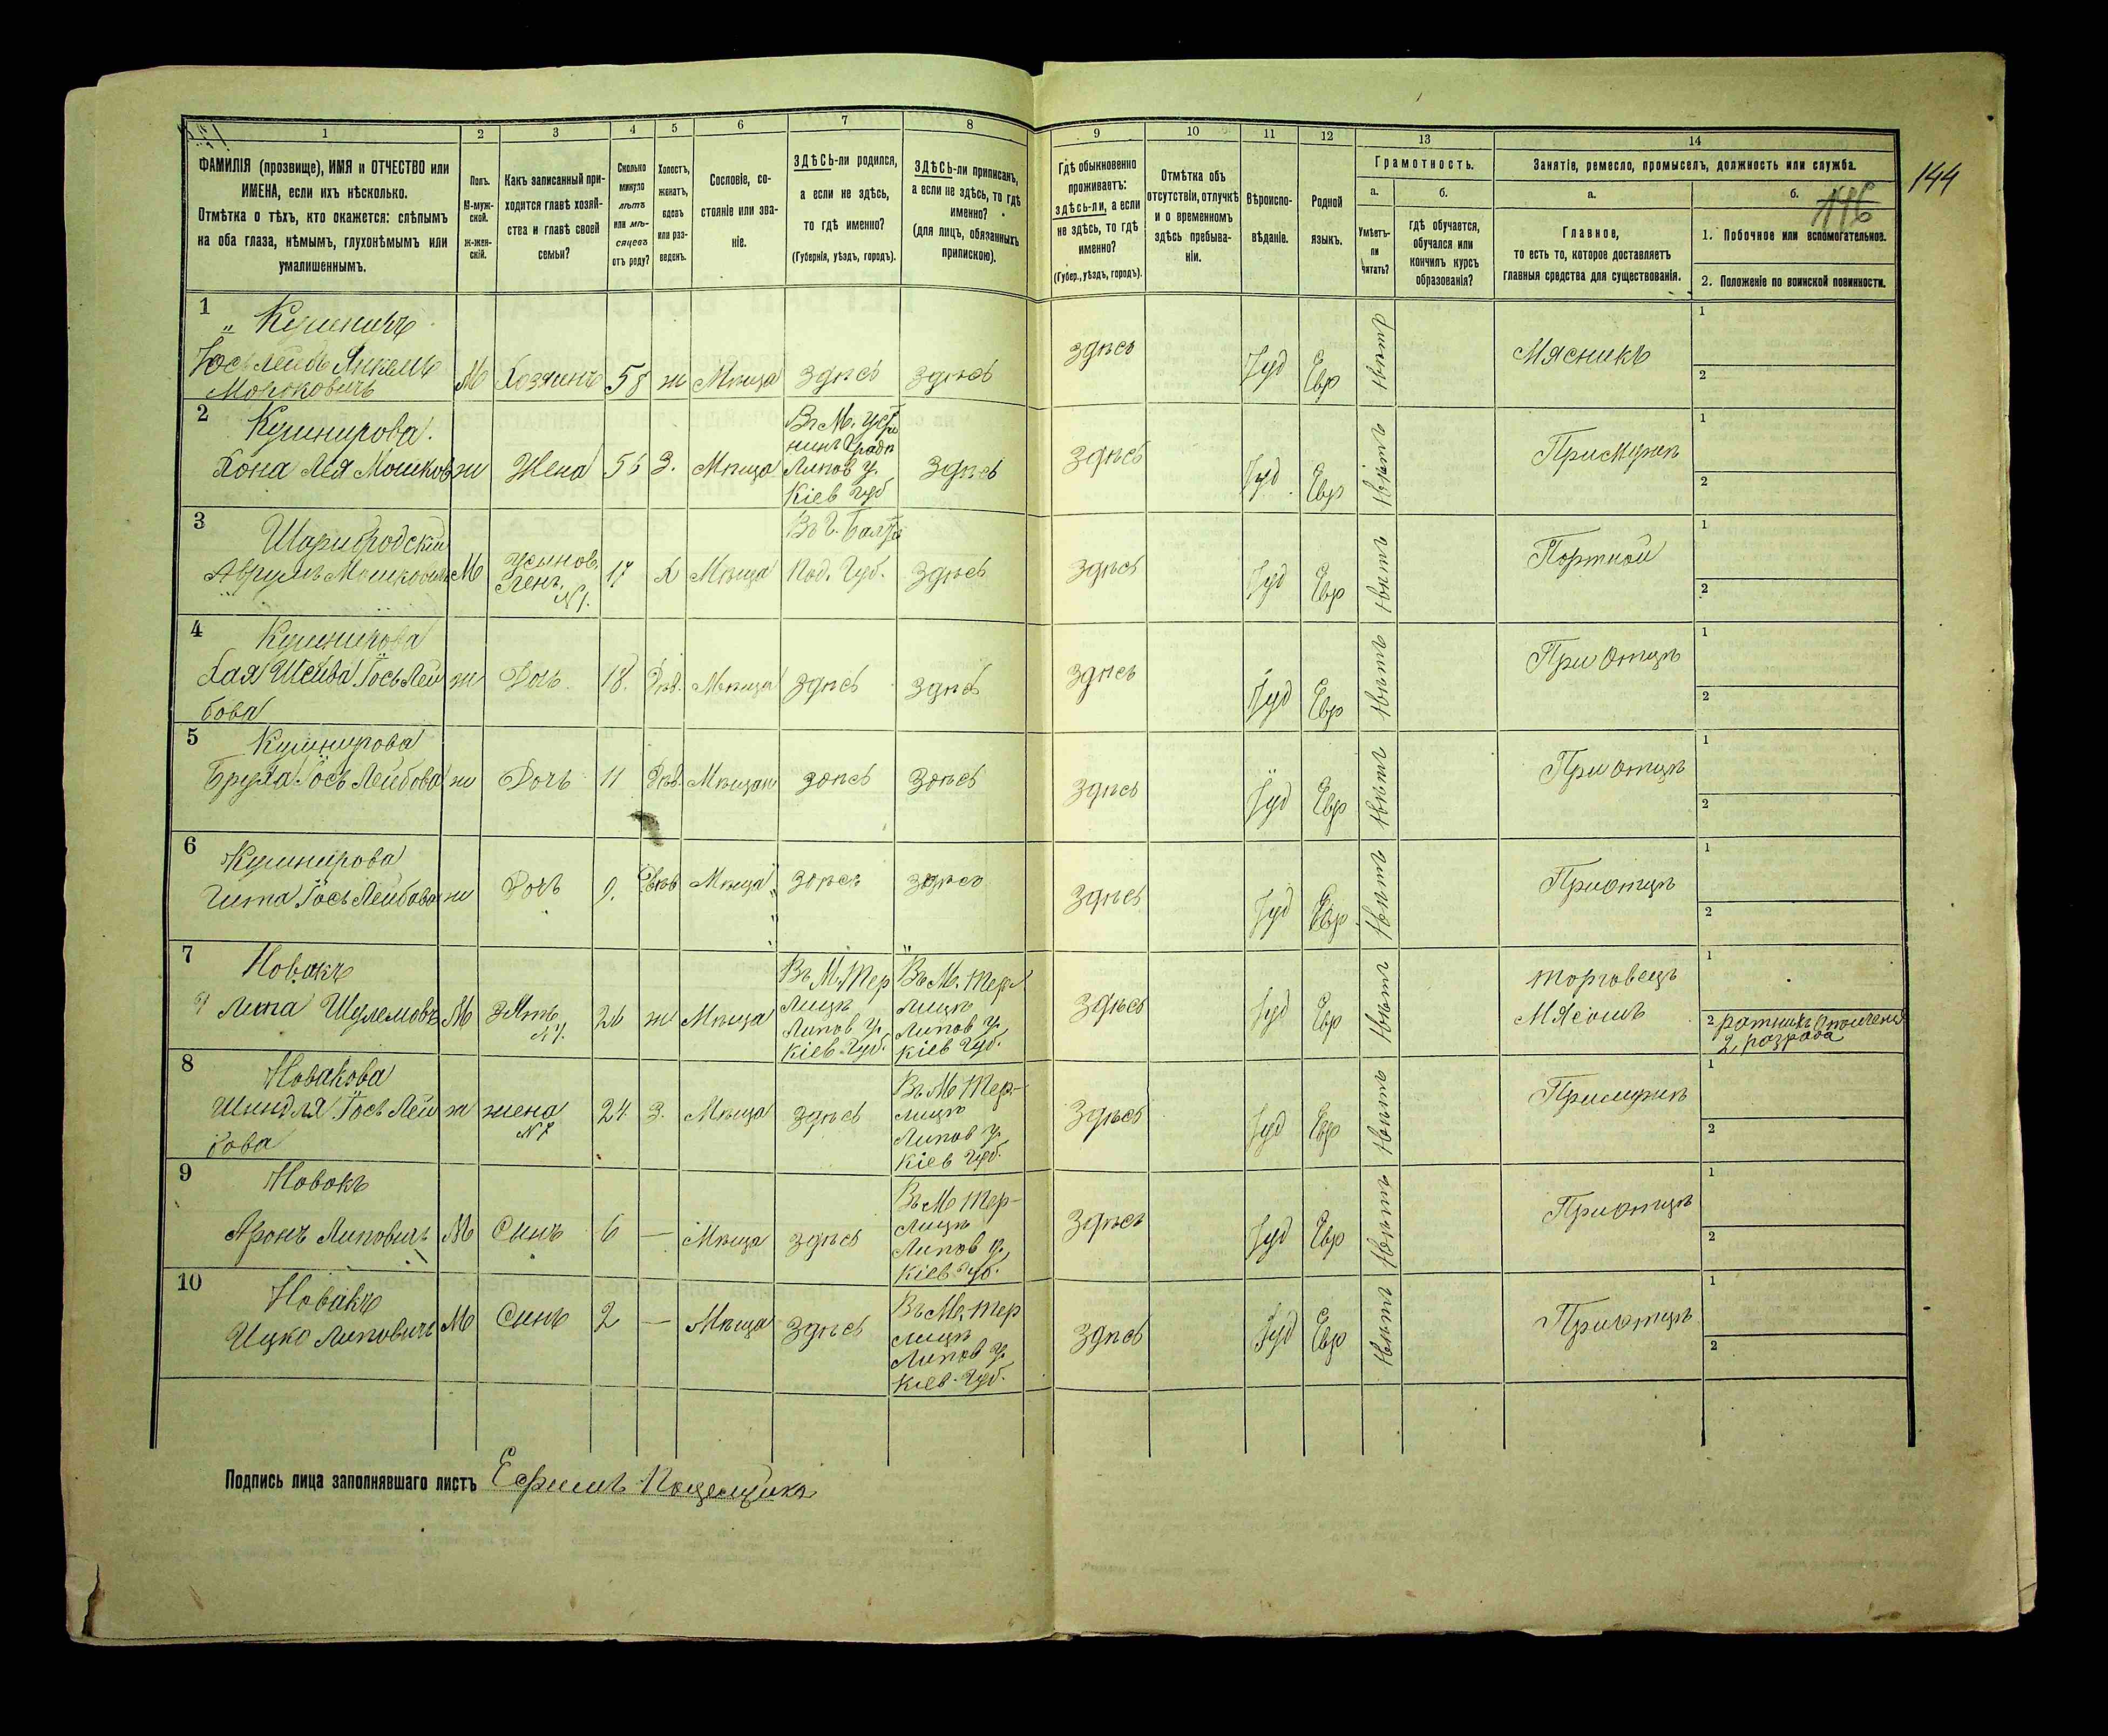 1
2
3
4
5
6
7
8
9
10
11
12
13
14
ФАМИЛІЯ (прозвище), ИМЯ и ОТЧЕСТВО или
ИМЕНА, если ихъ нѣсколько.
Отмѣтка о тѣхъ, кто окажется: слѣпымъ
на оба глаза, нѣмымъ, глухонѣмымъ или
умалишеннымъ.
Полъ.
М-муж-
ской.
ж-жен-
скій.
Какъ записанный при-
ходится главѣ хозяй-
ства и главѣ своей
семьи?
Сколько
минуло
лѣтъ
или мѣ-
сяцевъ
отъ роду?
Холостъ,
женатъ,
вдовъ
или раз-
веденъ.
Сословіе, со-
стояніе или зва-
ніе.
ЗДѢСЬ-ли родился,
а если не здѣсь,
то гдѣ именно?
(Губернія, уѣздъ, городъ).
ЗДѢСЬ-ли приписанъ,
а если не здѣсь, то гдѣ
именно?
(для лицъ, обязанныхъ
припискою).
Гдѣ обыкновенно
проживаетъ:
здѣсь-ли, а если
не здѣсь, то гдѣ
именно?
(Губер., уѣздъ, городъ).
Отмѣтка объ
отсутствіи, отлучкѣ
и о временномъ
здѣсь пребыва-
ніи.
Вѣроиспо-
вѣданіе.
Родной
языкъ.
Грамотность.
а.
Умѣетъ-
ли
читать?
б.
Гдѣ обучается,
обучался или
кончилъ курсъ
образованія?
Занятіе, ремесло, промыселъ, должность или служба.
а.
Главное,
то есть то, которое доставляетъ
главныя средства для существованія.
б.
1. Побочное или вспомогательное.
2. Положеніе по воинской повинности.
144
1
М Хозяинъ 58 ж Мѣща здѣсь здѣсь
здѣсь Іуд Евр Мясникъ
1
2
2
Кушнирова
Лея Мошков ж Жена 3. Мѣща
Въ М.
Липов у.
Кіев губ
здѣсь
здѣсь Іуд Евр нѣтъ При мужѣ
1
2
3
М
усынов.
N 1.
17 Х Мѣща
Въ Г. Балтѣ
Под. Губ.
здѣсь
здѣсь Іуд Евр нѣтъ Портной
1
2
4
Кушнирова
Хая Шейва Іось Лей
бова
ж Дочь 18. Дѣв. Мѣща здѣсь здѣсь
здѣсь Іуд Евр нѣтъ При отцѣ
1
2
5
Кушнирова
Бруха Іось Лейбова ж Дочь 11 Дѣв. Мѣщан здѣсь здѣсь
здѣсь Іуд Евр нѣтъ При отцѣ
1
2
6
Кушнирова
Гитла Іось Лейбова ж Дочь 9. Мѣща здѣсь здѣсь
здѣсь Іуд Евр нѣтъ При отцѣ
1
2
7
Новакъ
Липа Шулемовъ М зять
N 1.
26 ж Мѣща
Въ М. Тер
лицѣ
Липов у.
Кіев. Губ.
Въ М. Тер
лицѣ
Липов у.
Кіев Губ.
здѣсь Іуд Евр нѣтъ
Торговецъ
Мясомъ
1
2 ратникъ ополчения
2 разряда
8
Новакова
Шиндля Іось Лей
бова
ж жена
N 7
24 3. Мѣща здѣсь
Въ М Тер-
лицѣ
Липов у.
Кіев Губ.
здѣсь Іуд Евр нѣтъ При мужѣ
1
2
9
Новокъ
Аронъ Липовичъ М Сынъ 6 — Мѣща здѣсь
Въ М Тер-
лицѣ
Липов у.
Кіев Губ.
здѣсь Іуд Евр нѣтъ При отцѣ
1
2
10
Новакъ
Ицко Липовичъ М Сынъ 2 — Мѣща здѣсь
Въ М. Тер
лицѣ
Липов у.
Кіев. Губ.
здѣсь Іуд Евр нѣтъ При отцѣ
1
2
Подпись лица заполнявшаго листъ Ефимъ